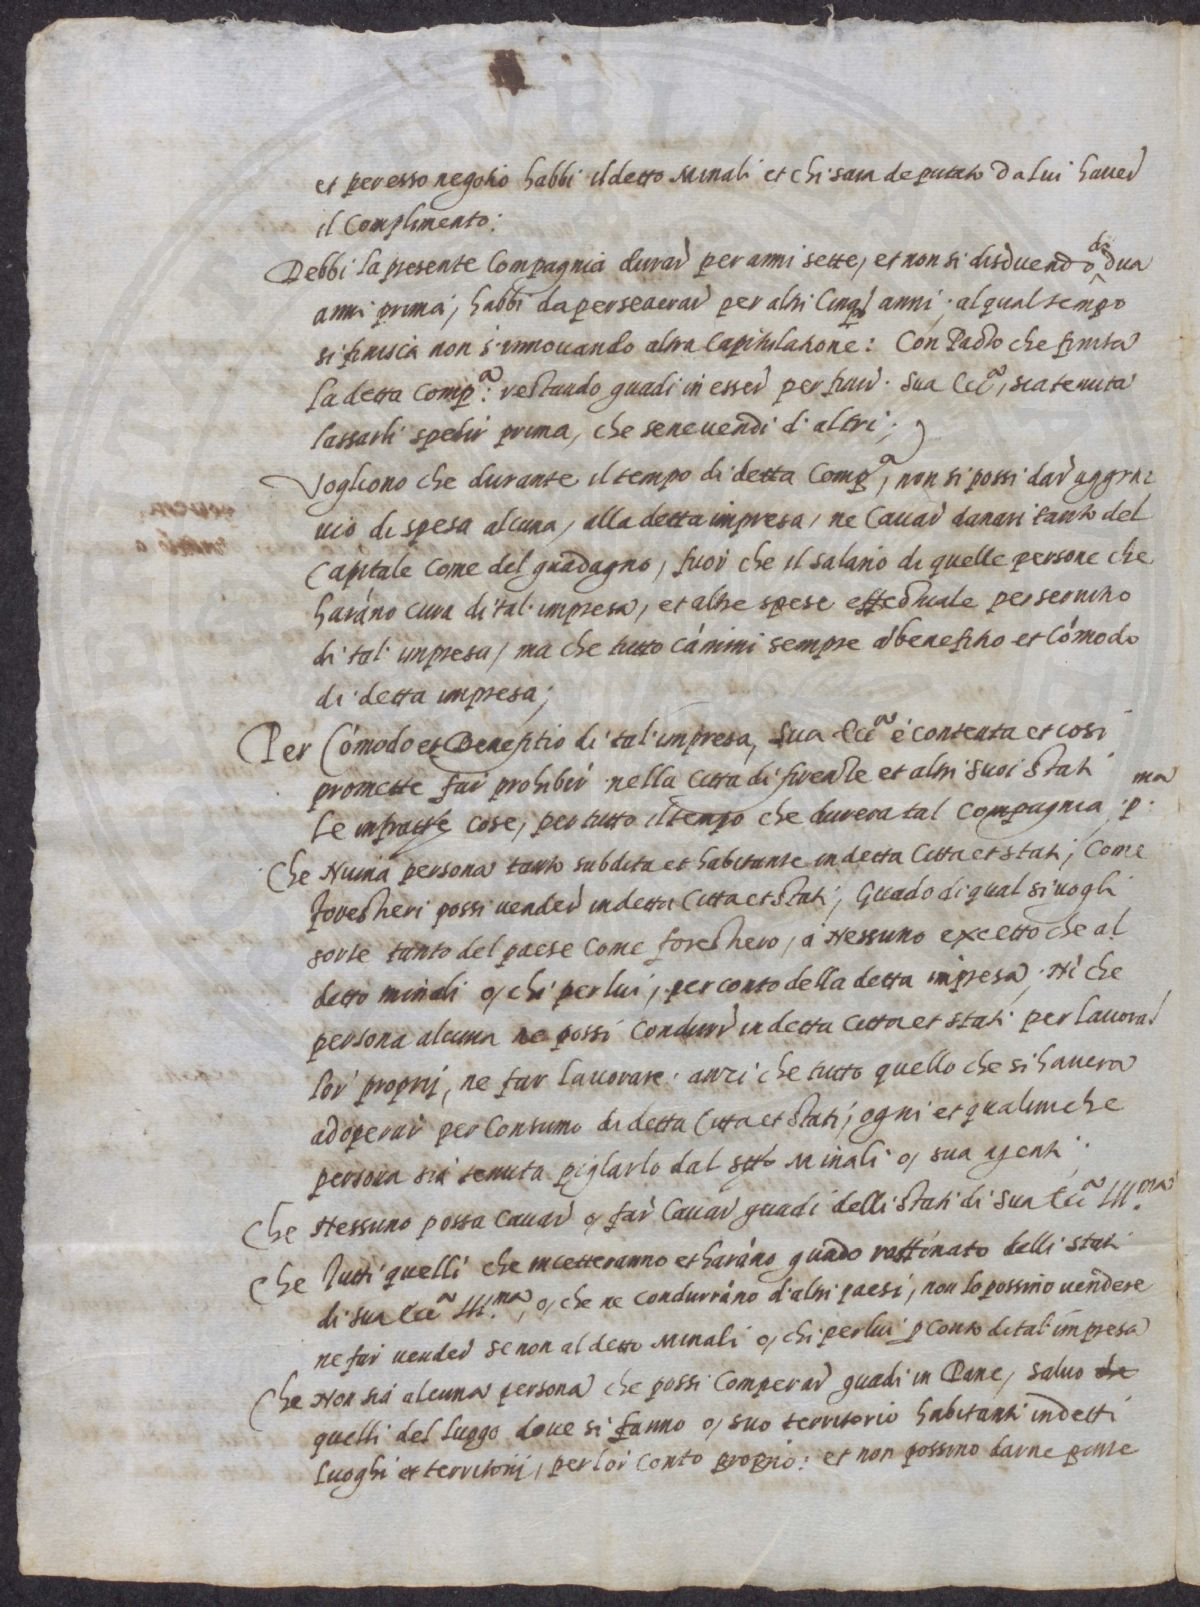 et per esso negotio habbi il detto Minali et chi sara deputato da lui haver
il Complimento:
Debbi la presente Compagnia durar per anni sette, et non si disdicendo da dua
anni prima, habbi da perseverar per altri Cinq; anni; al qual tempo
si finisca non s'innovando altra Capitulatione: Con Patto che finita
la detta Compa: restando guadi in esser per finir. Sua Ecca, sia tenuta
lassarli spedir prima, che se ne vendi d'altri;
Vogliono che durante il tempo di detta Compa, non si possi dar aggra:
vio di spesa alcuna, alla detta impresa, ne Cavar danari tanto del
Capitale Come del guadagno, fuor che il salario di quelle persone che
haráno cura di tal' impresa, et altre spese effectuale per servitio
di tal' impresa, ma che tutto cámini sempre a benefitio et Cómodo
di detta impresa;
Per Cómodo et Benefitio di tal' impresa, Sua Ecca é contenta et cosi
promette far prohibir nella Citta di firenze et altri suoi Stati
le infratte cose, per tutto il tempo che durera tal Compagnia, pma
Che Niuna persona tanto subdita et habitante in detta Citta et stati, Come
forestieri possi vender in detta Citta et Stati, Guado di qual si vogli
sorte tanto del paese Come forestiero, a Nessuno excetto che al
detto minali o, chi per lui, per conto della detta impresa, Né che
persona alcuna ne possi Condurr in detta Citta et stati per lavorar
lor' proprij, ne far lavorare. anzi che tutto quello che si havera
adoperar per Consumo di detta Citta et Stati, ogni et qualunche
persona sia tenuta pigliarlo dal stto Minali o, sua agenti;
Che Nessuno possa Cavar o, far Cavar guadi delli Stati di Sua Ecca Ill.ma
Che Tutti quelli che incetteranno et haráno guado raffinato delli stati
di Sua Ecca Ill.ma, o, che ne condurráno d'altri paesi, non lo possino vendere
ne far vender se non al detto Minali o, chi per lui p conto di tal' impresa
Che Non sia alcuna persona che possi Comperar guadi in Pane, salvo de
quelli del luogo dove si fanno o, suo territorio habitanti in detti
luoghi et territorij, per lor Conto proprio: et non possino darne parte